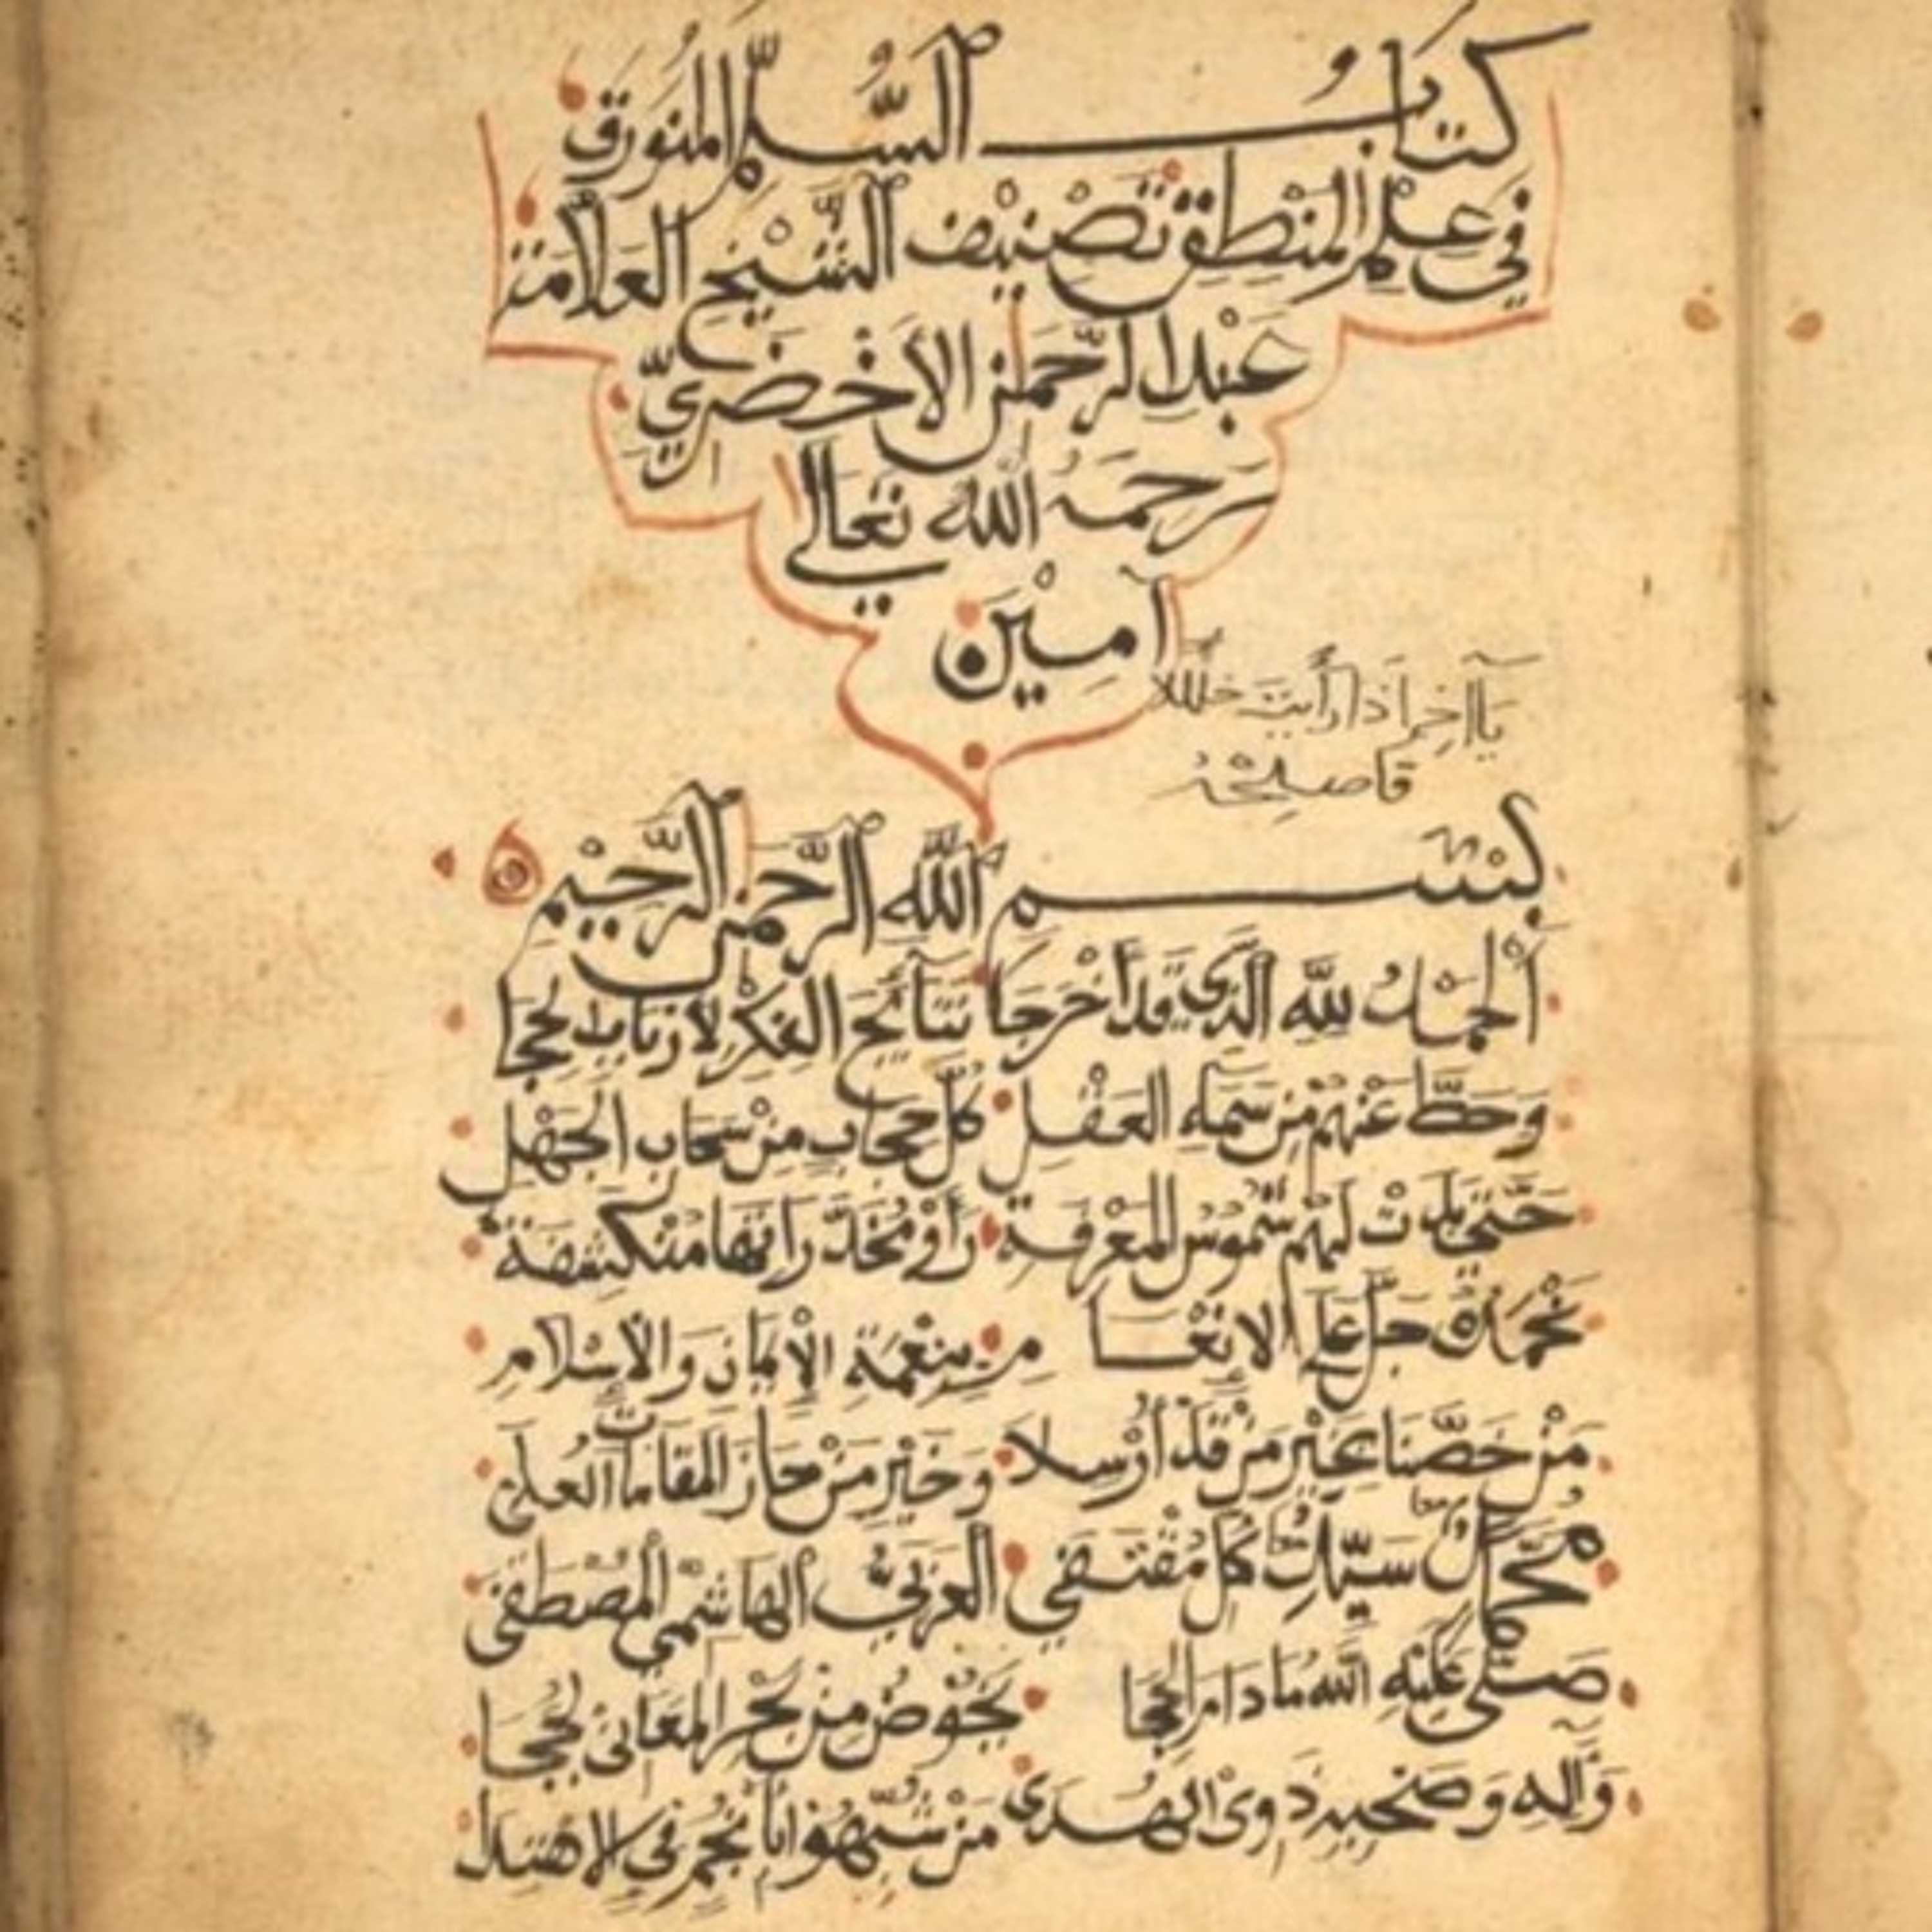 كتاب السُّلَّم المُنَورَق
فِي عِلْمِ المَنْطِقِ تَصْنِيْف الشَّيْخِ العَلاَّمَة
عَبْدِ الرَّحمٰنِ الأَخْضَرِيّ
رَحِمَهُ اللّٰه تَعَالَى
آمِيْنَ
يَا اخِي اذا رَأيتَ خللا
فاصلحْهُ
بِسْمِ اللّٰهِ الرَّحمٰنِ الرَّحِيْمِ
اَلْحَمْدُ لِلّٰهِ الَّذِي قَدْ أَخْرَجَا نَتَآئِجَ الفِكْرِ لاَرْبَابِ الحِجَا
وَحَطَّ عَنْهُمْ مِنْ سَمَآءِ العَقْلِ كُلَّ حِجَابٍ مِنْ سَحَابِ الجَهْلِ
حَتَّى بَدَتْ لَهُمْ شُمُوْسُ المَعْرِفَةِ رَأَوْ مُخَدَّرَاتِهَا مُنْكَشِفَةْ
نَحْمَدُهُ جَلَّ عَلى الانْعَامِ بِنِعْمَةِ الْإيْمَانِ وَالْاسْلَامِ
مَنْ خَصَّنَا بِخَيْرِ مَنْ قَدْ أُرْسِلَا وَخَيْرِ مَنْ حَازَ المَقَامَاتِ العُلَى
مُحَمَّدٍ سَيِّدِ كُلِّ مُقْتَفَى العَرَبِيِّ الهَاشِمِيِّ المُصْطَفَى
صَلَّى عَلَيْهِ اللّٰهُ مَا دَامَ الحِجَا يَخُوْضُ مِنْ بَحْرِ المَعَانِيْ لُجَجَا
وَآلِهِ وَصَحْبِهِ ذَوِي الهُدَى مَنْ شُبِّهُوْا بِأَنْجُمٍ فِي الاهْتِدَا